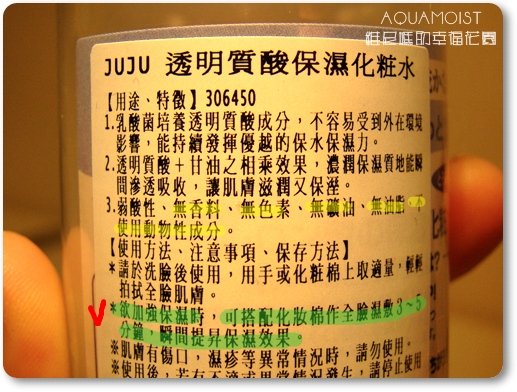 AQUAMOIST
維尼底的幸福花園
JUJU 透明質酸保濕化粧水
【用途、特徵】306450
1.乳酸菌培養透明質酸成分，不容易受到外在環境
影響，能持續發揮優越的保水保濕力。
2.透明質酸＋甘油之相乘效果，濃潤保濕質地能瞬
間滲透吸收，讓肌膚滋潤又保溼。
3.弱酸性、無香料、無色素、無礦油、無油脂、不
使用動物性成分。
【使用方法、注意事項、保存方法】
*請於洗臉後使用，用手或化粧棉上取適量，輕輕
拍拭全臉肌膚。
*欲加強保濕時，可搭配化妝棉作全臉濕敷3～5
分鐘，瞬間提昇保濕效果。
※肌膚有傷口，濕疹等異常情況時，請勿使用。
※使用後，若有不適或異常情況發生，請停止使用